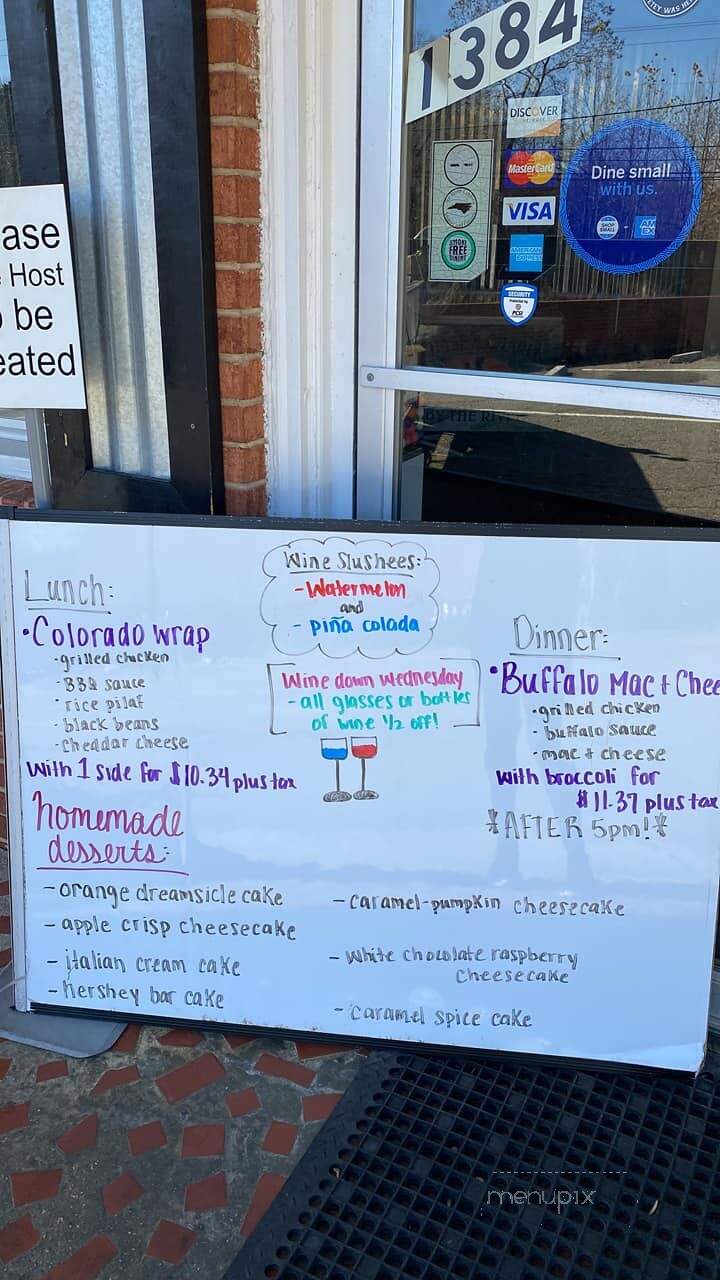 1384
DISCOVER
MasterCard
VISA
AMERICAN EXPRESS
SMOKE FREE
SECURITY
Dine small
with us.
SHOP SMALL
AM EX
BY THE RIV
ase
Host
be
eated
Lunch:
•Colorado wrap
-grilled chicken
-BBQ sauce
-rice pilaf
-black beans
-cheddar cheese
with 1 side for $10.34 plus tax
Wine Slushees:
-Watermelon
and
- piña colada
Wine down Wednesday
-all glasses or bottles
of wine 1/2 off!
Dinner:
•Buffalo Mac + Chee
-grilled chicken
-buffalo sauce
-mac + cheese
with broccoli for
$11.37 plus tax
*AFTER 5pm!*
homemade
desserts:
-orange dreamsicle cake
-apple crisp cheesecake
-italian cream cake
-hershey bar cake
-caramel-pumpkin cheesecake
-white chocolate raspberry
cheesecake
-caramel spice cake
menupix